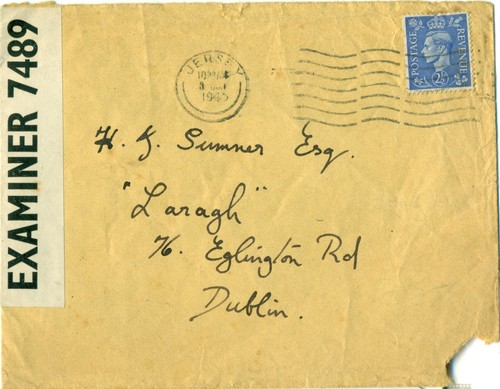 EXAMINER 7489
JERSEY
1945
POSTAGE
REVENUE
H. J. Sumner Esq.
"Laragh"
76. Eglington Rd
Dublin.